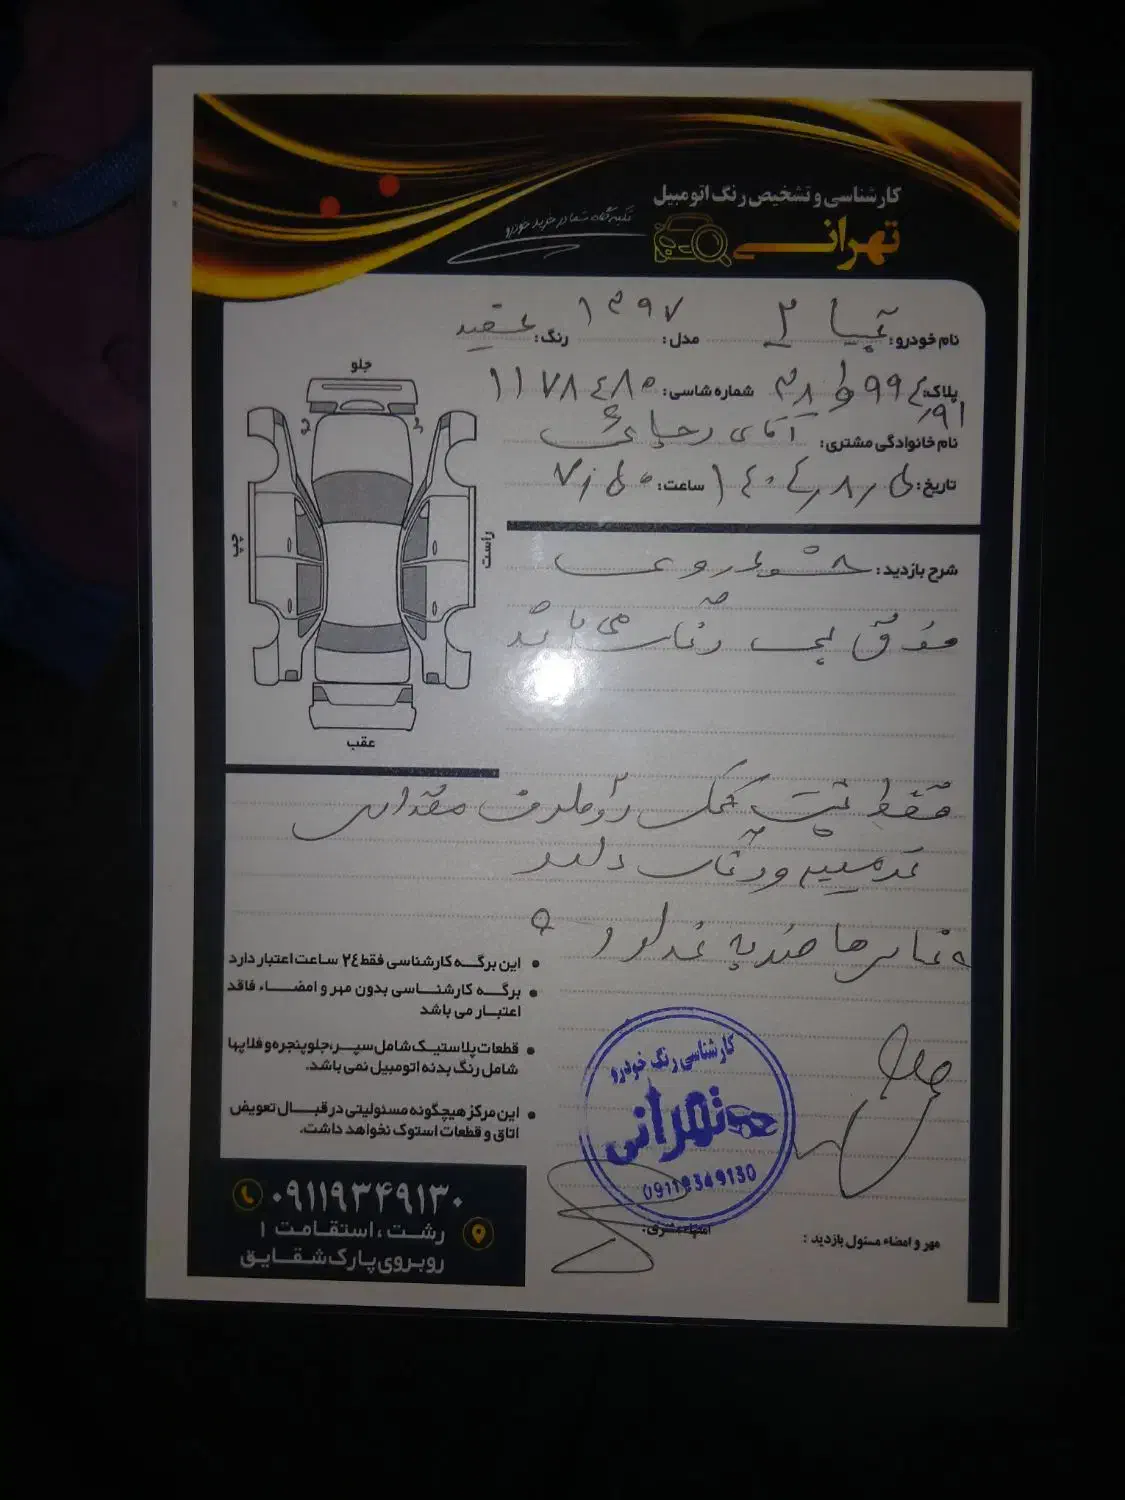 کارشناسی و تشخیص رنگ اتومبیل
تهرانی
تکیه گاه شما در خرید خودرو
نام خودرو: تیبا ۲ مدل: ۱۳۹۷ رنگ: سفید
پلاک: ۹۹۴ ط ۳۸ شماره شاسی: ۱۱۷۸۴۸۵
۹۱
نام خانوادگی مشتری: آقای رجایی
تاریخ: ۱۴۰۴/۸/۵ ساعت: ۷/۵۰
جلو
چپ
راست
عقب
شرح بازدید: خودروی
فوق بی رنگ می باشد
فقط پشت دو طرف مقداری
ترمیم و رنگ دارد
ضربه ندارد
این برگه کارشناسی فقط ۲۴ ساعت اعتبار دارد
برگه کارشناسی بدون مهر و امضاء فاقد
اعتبار می باشد
قطعات پلاستیک شامل سپر، جلو پنجره و فلاپها
شامل رنگ بدنه اتومبیل نمی باشد.
این مرکز هیچگونه مسئولیتی در قبال تعویض
اتاق و قطعات استوک نخواهد داشت.
کارشناسی رنگ خودرو
تهرانی
09119349130
امضاء مشتری:
مهر و امضاء مسئول بازدید :
۰۹۱۱۹۳۴۹۱۳۰
رشت، استقامت ۱
روبروی پارک شقایق